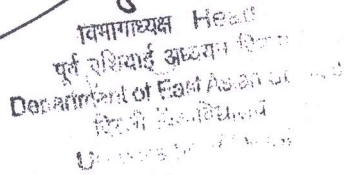 विभागाध्यक्ष Head
पूर्व एशियाई अध्ययन विभाग
Department of East Asian
दिल्ली विश्वविद्यालय